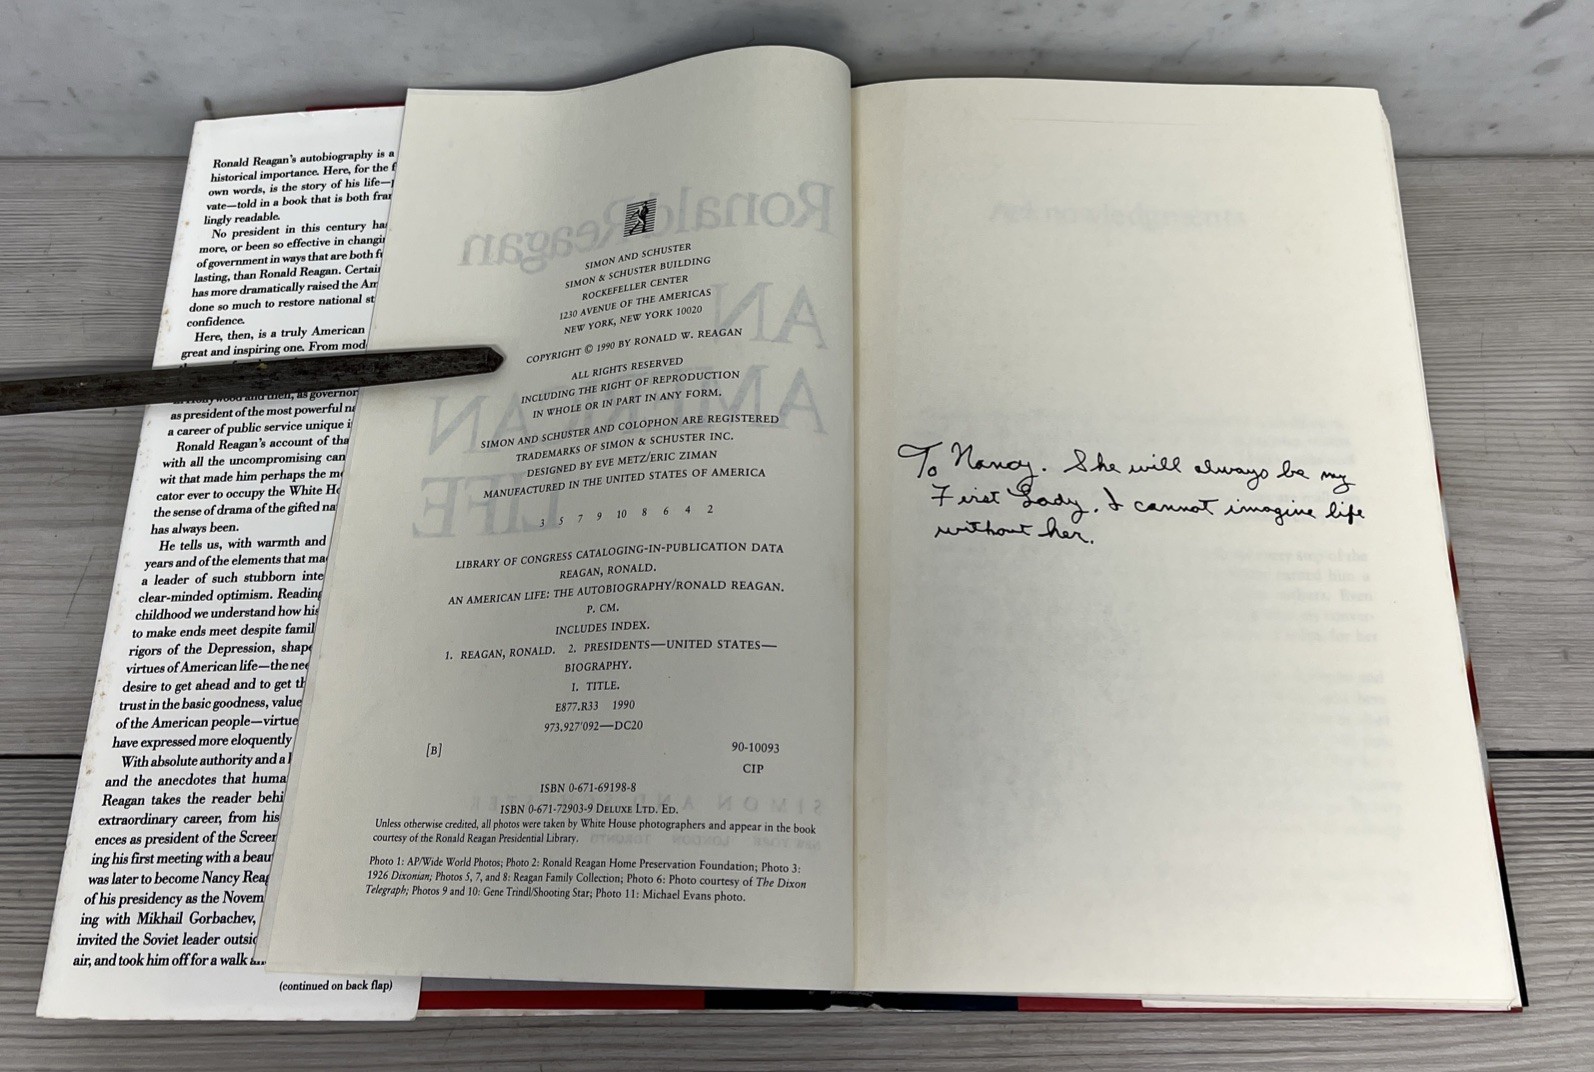 Ronald Reagan's autobiography is a
historical importance. Here, for the
own words, is the story of his life—
vate—told in a book that is both
lingly readable.
No president in this century
more, or been so effective in
of government in ways that are both
lasting, than Ronald Reagan.
has more dramatically raised the
done so much to restore national
confidence.
Here, then, is a truly American
great and inspiring one. From
then, as governor
as president of the most powerful
a career of public service unique
Ronald Reagan's account of
with all the uncompromising
wit that made him perhaps the
cator ever to occupy the White
the sense of drama of the gifted
has always been.
He tells us, with warmth and
years and of the elements that
a leader of such stubborn
clear-minded optimism.
childhood we understand how his
to make ends meet despite
rigors of the Depression,
virtues of American life—the
desire to get ahead and to get
trust in the basic goodness,
of the American people—
have expressed more eloquently
With absolute authority and a
and the anecdotes that
Reagan takes the reader
extraordinary career, from his
ences as president of the
ing his first meeting with a
was later to become Nancy
of his presidency as the
ing with Mikhail Gorbachev,
invited the Soviet leader
air, and took him off for a walk
(continued on back flap)
Ronald Reagan
AN
AMERICAN
LIFE
SIMON AND SCHUSTER
SIMON & SCHUSTER BUILDING
ROCKEFELLER CENTER
1230 AVENUE OF THE AMERICAS
NEW YORK, NEW YORK 10020
COPYRIGHT © 1990 BY RONALD W. REAGAN
ALL RIGHTS RESERVED
INCLUDING THE RIGHT OF REPRODUCTION
IN WHOLE OR IN PART IN ANY FORM.
SIMON AND SCHUSTER AND COLOPHON ARE REGISTERED
TRADEMARKS OF SIMON & SCHUSTER INC.
DESIGNED BY EVE METZ/ERIC ZIMAN
MANUFACTURED IN THE UNITED STATES OF AMERICA
3 5 7 9 10 8 6 4 2
LIBRARY OF CONGRESS CATALOGING-IN-PUBLICATION DATA
REAGAN, RONALD.
AN AMERICAN LIFE: THE AUTOBIOGRAPHY/RONALD REAGAN.
P. CM.
INCLUDES INDEX.
1. REAGAN, RONALD. 2. PRESIDENTS—UNITED STATES—
BIOGRAPHY.
I. TITLE.
E877.R33 1990
973.927'092—DC20
[B] 90-10093
CIP
ISBN 0-671-69198-8
ISBN 0-671-72903-9 DELUXE LTD. ED.
Unless otherwise credited, all photos were taken by White House photographers and appear in the book
courtesy of the Ronald Reagan Presidential Library.
Photo 1: AP/Wide World Photos; Photo 2: Ronald Reagan Home Preservation Foundation; Photo 3:
1926 Dixonian; Photos 5, 7, and 8: Reagan Family Collection; Photo 6: Photo courtesy of The Dixon
Telegraph; Photos 9 and 10: Gene Trindl/Shooting Star; Photo 11: Michael Evans photo.
Acknowledgments
To Nancy. She will always be my
First Lady. I cannot imagine life
without her.